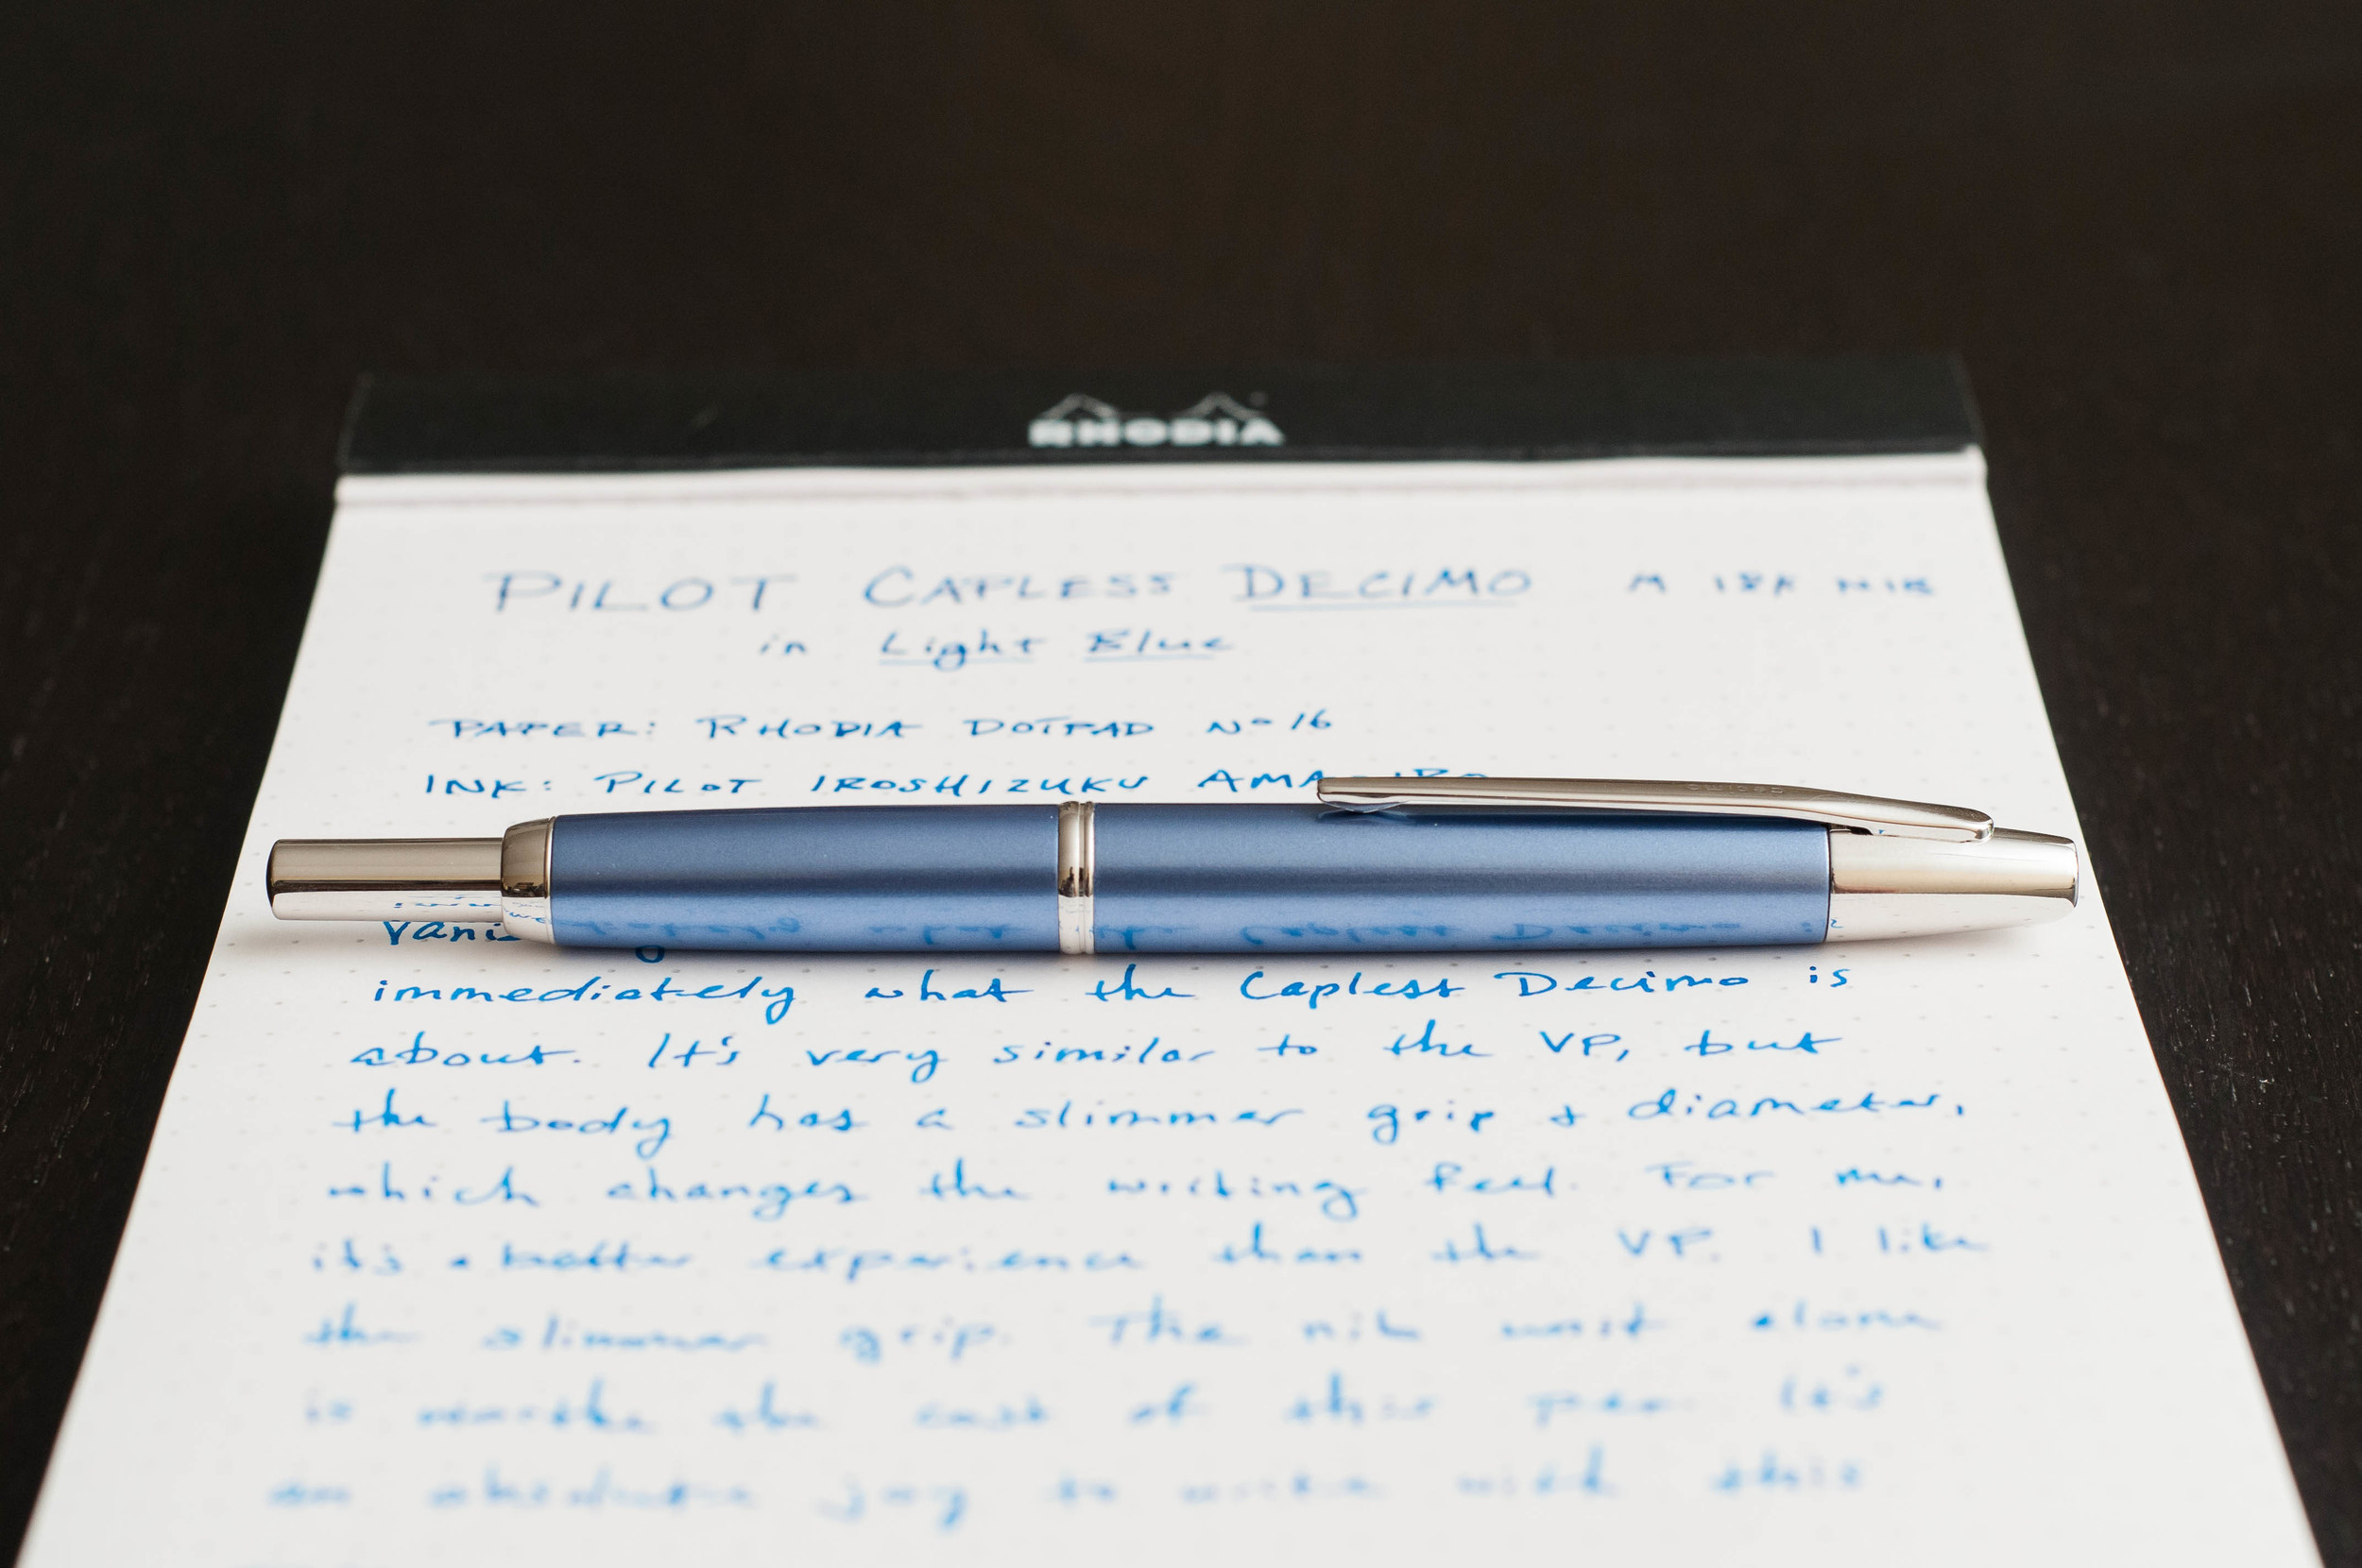 RHODIA
PILOT CAPLESS DECIMO M 18K NIB
in Light Blue
PAPER: RHODIA DOTPAD Nº 16
INK: PILOT IROSHIZUKU
immediately what the Capless Decimo is
about. It's very similar to the VP, but
the body has a slimmer grip & diameter,
which changes the writing feel. For me,
it's a better experience than the VP. I like
the slimmer grip. The nib unit alone
is worth the cost of this pen. It's
an absolute joy to write with this